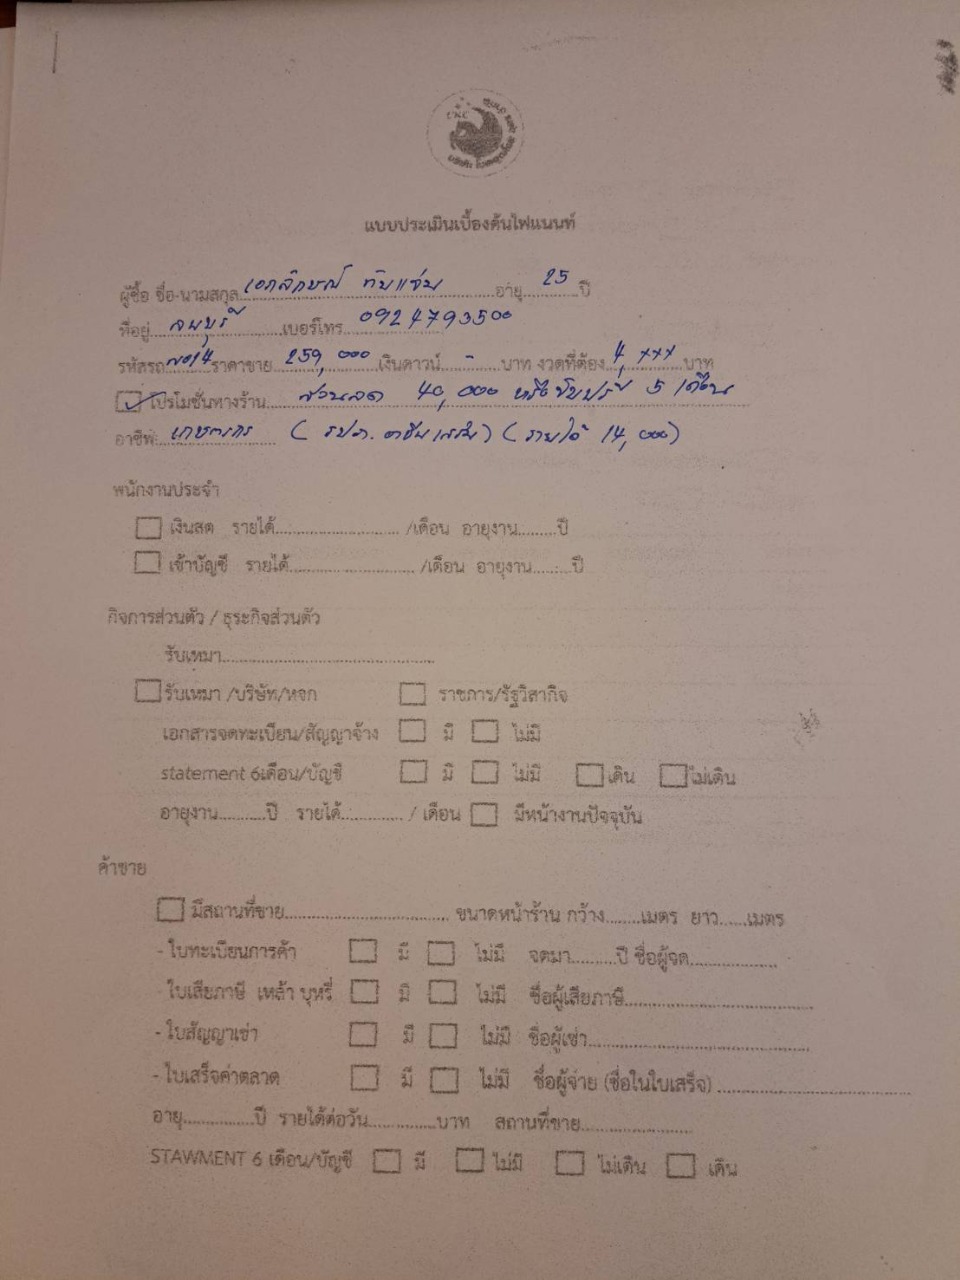 แบบประเมินเบื้องต้นไฟแนนท์
ผู้ซื้อ ชื่อ-นามสกุล เอกลักษณ์ ทับแช่ม อายุ 25 ปี
ที่อยู่ ลพบุรี เบอร์โทร 0924793500
รหัสรถ ราคาขาย 259,000 เงินดาวน์ - บาท งวดที่ต้อง 4,xxx บาท
โปรโมชั่นทางร้าน ส่วนลด 40,000 หรือขับฟรี 5 เดือน
อาชีพ เกษตรกร ( รปภ. อาชีพเสริม ) ( รายได้ 14,000 )
พนักงานประจำ
เงินสด รายได้ /เดือน อายุงาน ปี
เข้าบัญชี รายได้ /เดือน อายุงาน ปี
กิจการส่วนตัว / ธุระกิจส่วนตัว
รับเหมา
รับเหมา /บริษัท/หจก ราชการ/รัฐวิสากิจ
เอกสารจดทะเบียน/สัญญาจ้าง มี ไม่มี
statement 6เดือน/บัญชี มี ไม่มี เดิน ไม่เดิน
อายุงาน ปี รายได้ / เดือน มีหน้างานปัจจุบัน
ค้าขาย
มีสถานที่ขาย ขนาดหน้าร้าน กว้าง เมตร ยาว เมตร
- ใบทะเบียนการค้า มี ไม่มี จดมา ปี ชื่อผู้จด
- ใบเสียภาษี เหล้า บุหรี่ มี ไม่มี ชื่อผู้เสียภาษี
- ใบสัญญาเช่า มี ไม่มี ชื่อผู้เช่า
- ใบเสร็จค่าตลาด มี ไม่มี ชื่อผู้จ่าย (ชื่อในใบเสร็จ)
อายุ ปี รายได้ต่อวัน บาท สถานที่ขาย
STAWMENT 6 เดือน/บัญชี มี ไม่มี ไม่เดิน เดิน